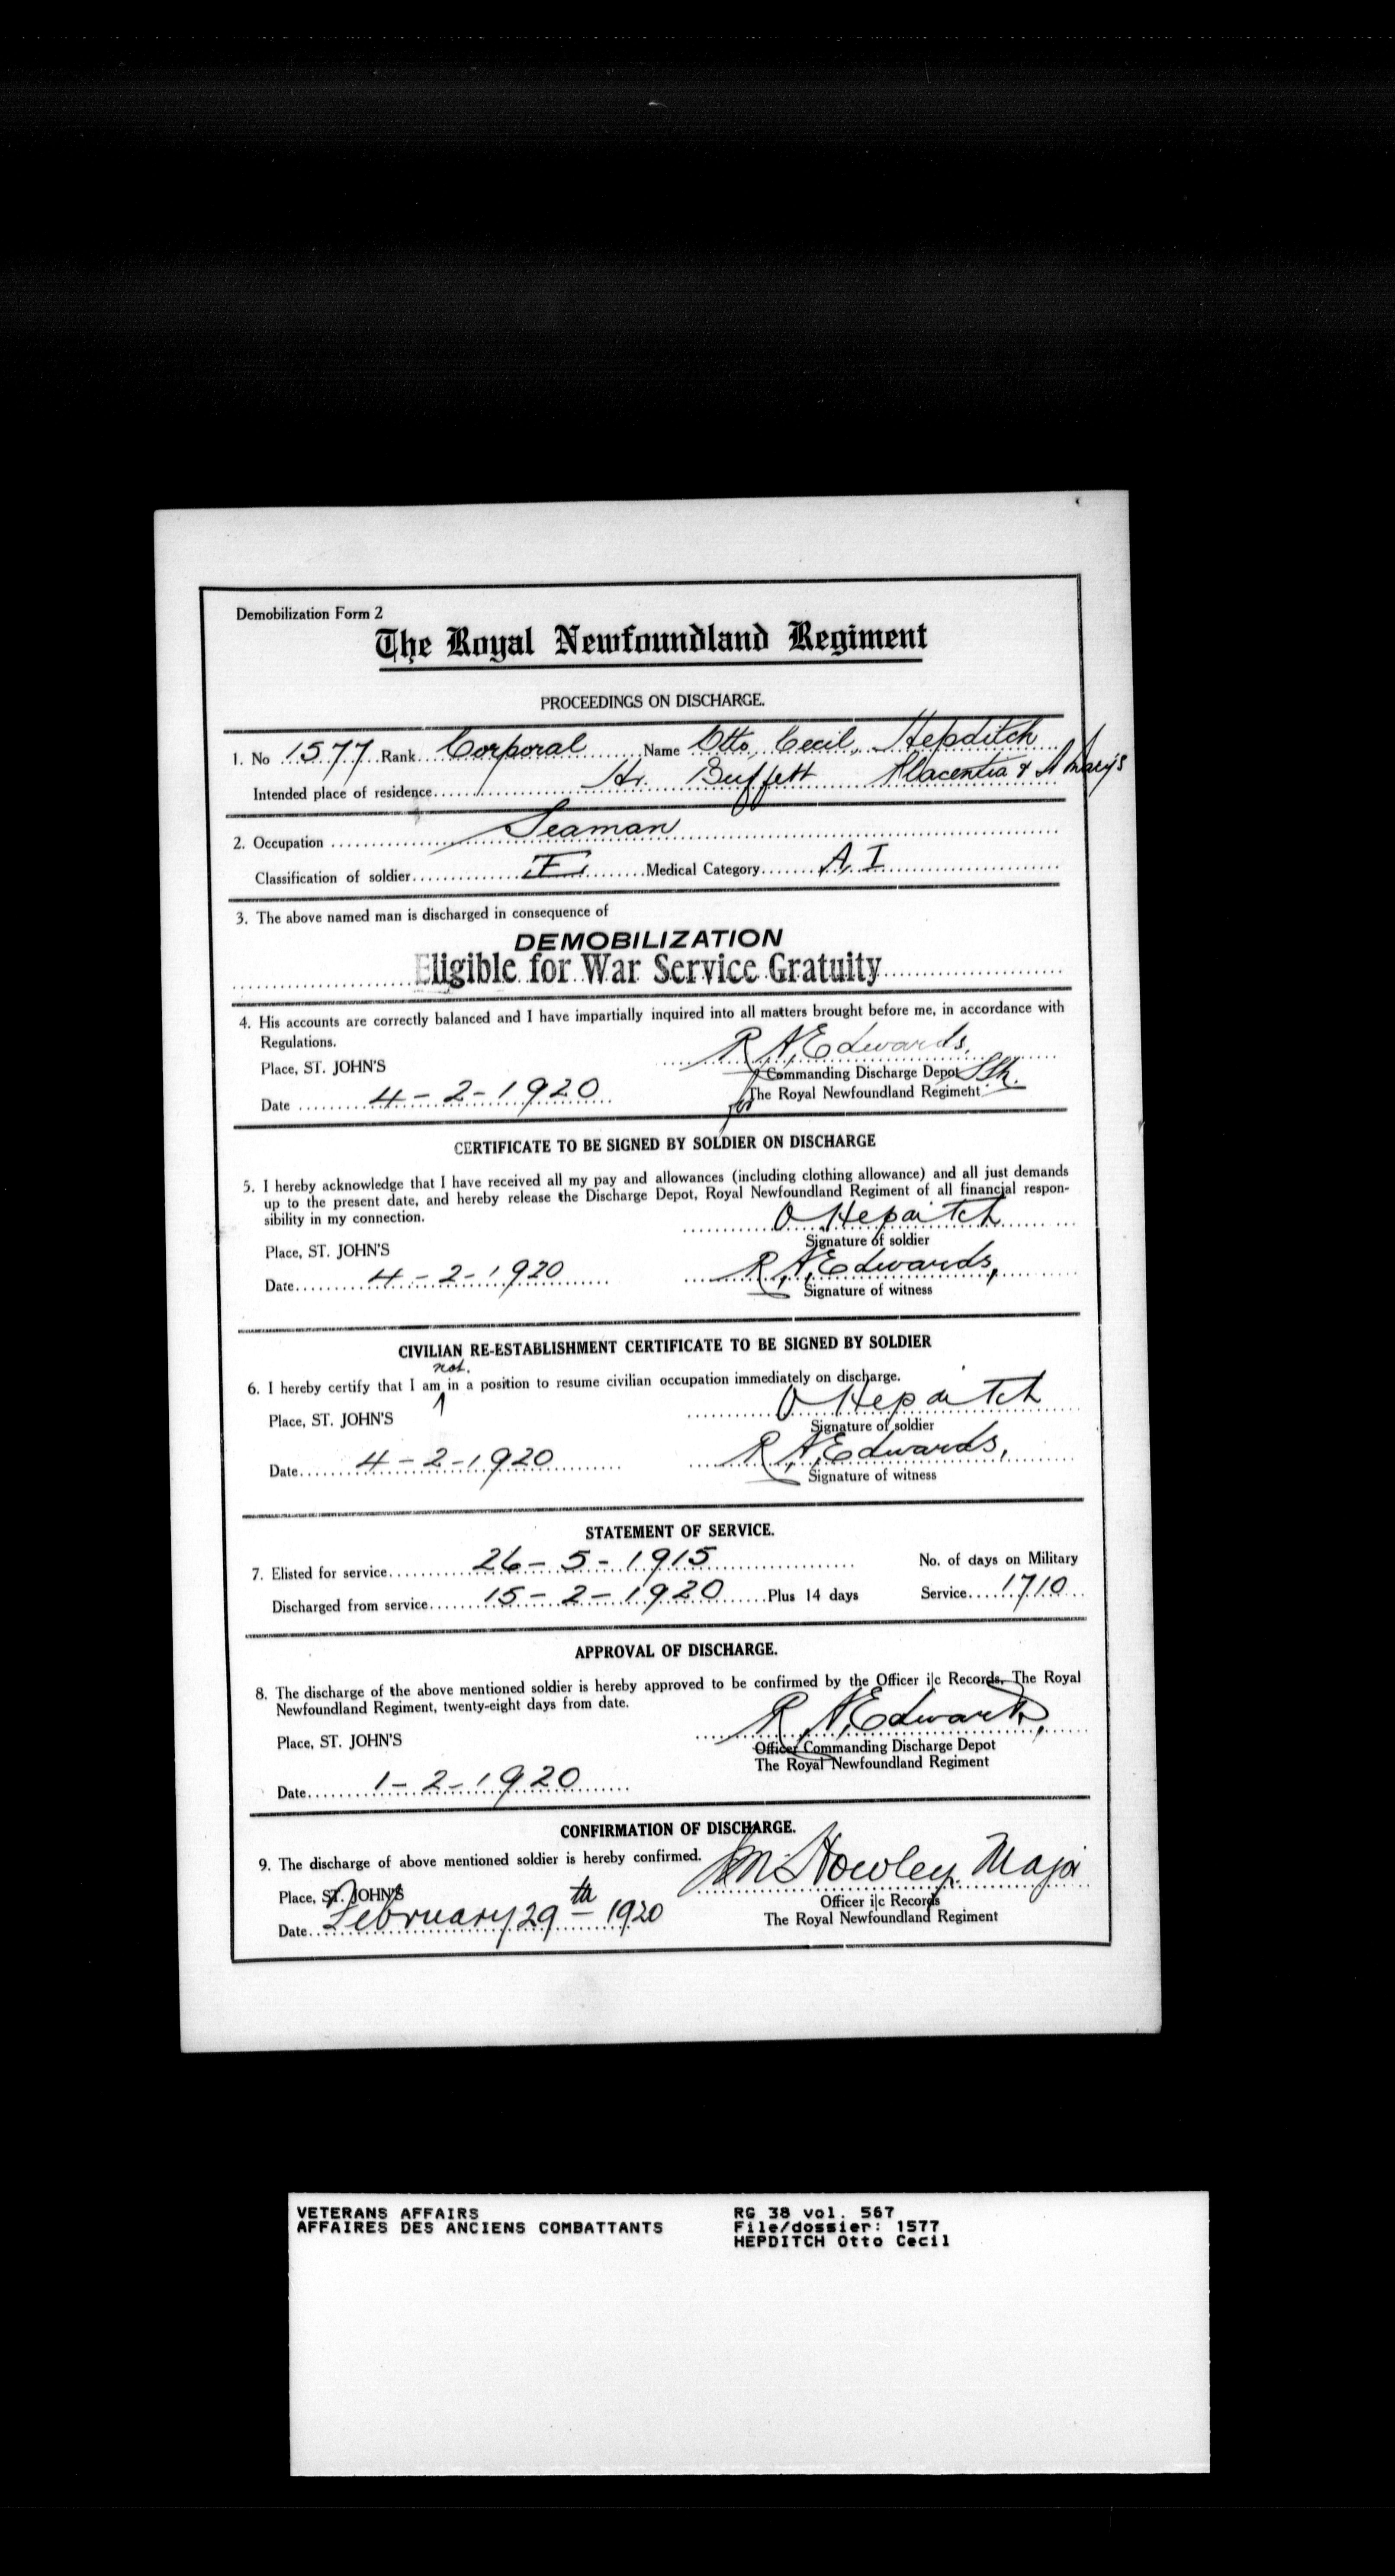 Demobilization Form 2
The Royal Newfoundland Regiment
PROCEEDINGS ON DISCHARGE.
1. No 1577 Rank Corporal Name Otto Cecil Hepditch
Intended place of residence Hr. Buffett Placentia & St Mary's
2. Occupation Seaman
Classification of soldier Medical Category A I
3. The above named man is discharged in consequence of
DEMOBILIZATION
Eligible for War Service Gratuity
4. His accounts are correctly balanced and I have impartially inquired into all matters brought before me, in accordance with
Regulations.
R A Edwards.
Place, ST. JOHN'S
for Commanding Discharge Depot
Date 4-2-1920 The Royal Newfoundland Regiment
CERTIFICATE TO BE SIGNED BY SOLDIER ON DISCHARGE
5. I hereby acknowledge that I have received all my pay and allowances (including clothing allowance) and all just demands
up to the present date, and hereby release the Discharge Depot, Royal Newfoundland Regiment of all financial respon-
sibility in my connection.
O Hepditch
Signature of soldier
Place, ST. JOHN'S
R. A. Edwards,
Date 4-2-1920
Signature of witness
CIVILIAN RE-ESTABLISHMENT CERTIFICATE TO BE SIGNED BY SOLDIER
not.
6. I hereby certify that I am in a position to resume civilian occupation immediately on discharge.
O Hepditch
Place, ST. JOHN'S
Signature of soldier
R. A. Edwards,
Date 4-2-1920
Signature of witness
STATEMENT OF SERVICE.
7. Elisted for service 26-5-1915 No. of days on Military
Discharged from service 15-2-1920 Plus 14 days Service 1710
APPROVAL OF DISCHARGE.
8. The discharge of the above mentioned soldier is hereby approved to be confirmed by the Officer i|c Records, The Royal
Newfoundland Regiment, twenty-eight days from date.
R A. Edwards,
Place, ST. JOHN'S
Officer Commanding Discharge Depot
The Royal Newfoundland Regiment
Date 1-2-1920
CONFIRMATION OF DISCHARGE.
9. The discharge of above mentioned soldier is hereby confirmed.
Howley Major
Place, ST. JOHN'S
Officer i|c Records
Date February 29th 1920 The Royal Newfoundland Regiment
VETERANS AFFAIRS RG 38 vol. 567
AFFAIRES DES ANCIENS COMBATTANTS File/dossier: 1577
HEPDITCH Otto Cecil